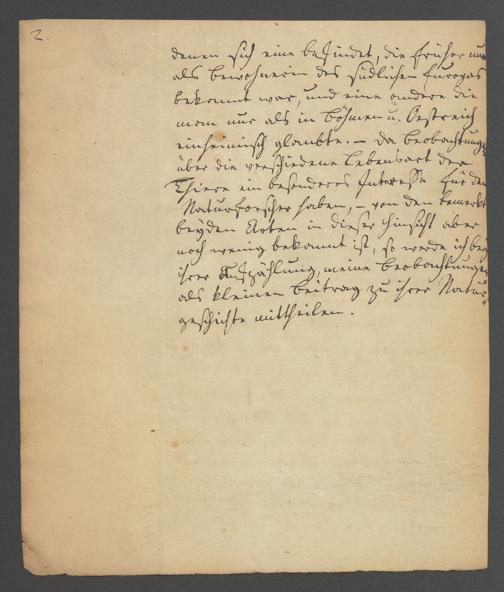 2.
denen sich eine befindet, die früher nur
als Bewohnerin des südlichen Europas
bekannt war, und eine andere die
man nur als in Böhmen u. Oestreich
einheimisch glaubte. – Da Beobachtungen
über die verschiedene Lebensart der
Thiere ein besonderes Interesse für den
Naturforscher haben, – von den bemerkt
beyden Arten in dieser Hinsicht aber
noch wenig bekannt ist, so werde ich bey
ihrer Aufzählung, meine Beobachtungen
als kleinen Beitrag zu ihrer Natur-
geschichte mittheilen.